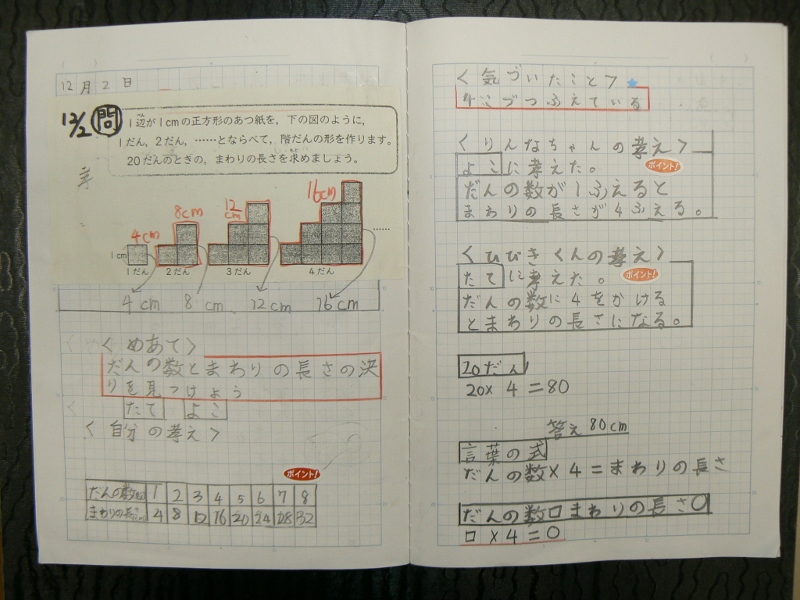 12月2日
12/2 問
1辺が1cmの正方形のあつ紙を、下の図のように、
1だん、2だん、……とならべて、階だんの形を作ります。
20だんのときの、まわりの長さを求めましょう。
4cm 8cm 12cm 16cm
1cm
1だん 2だん 3だん 4だん ……
4cm 8cm 12cm 16cm
〈めあて〉
だんの数とまわりの長さの決
りを見つけよう
たて よこ
〈自分の考え〉
ポイント!
だんの数 1 2 3 4 5 6 7 8
まわりの長さ 4 8 12 16 20 24 28 32
〈気づいたこと〉
4こづつふえている
〈りんなちゃんの考え〉
よこに考えた。 ポイント!
だんの数が1ふえると
まわりの長さが4ふえる。
〈ひびきくんの考え〉
たてに考えた。 ポイント!
だんの数に4をかける
とまわりの長さになる。
20だん
20×4=80
答え80cm
言葉の式
だんの数×4=まわりの長さ
だんの数□まわりの長さ○
□×4=○